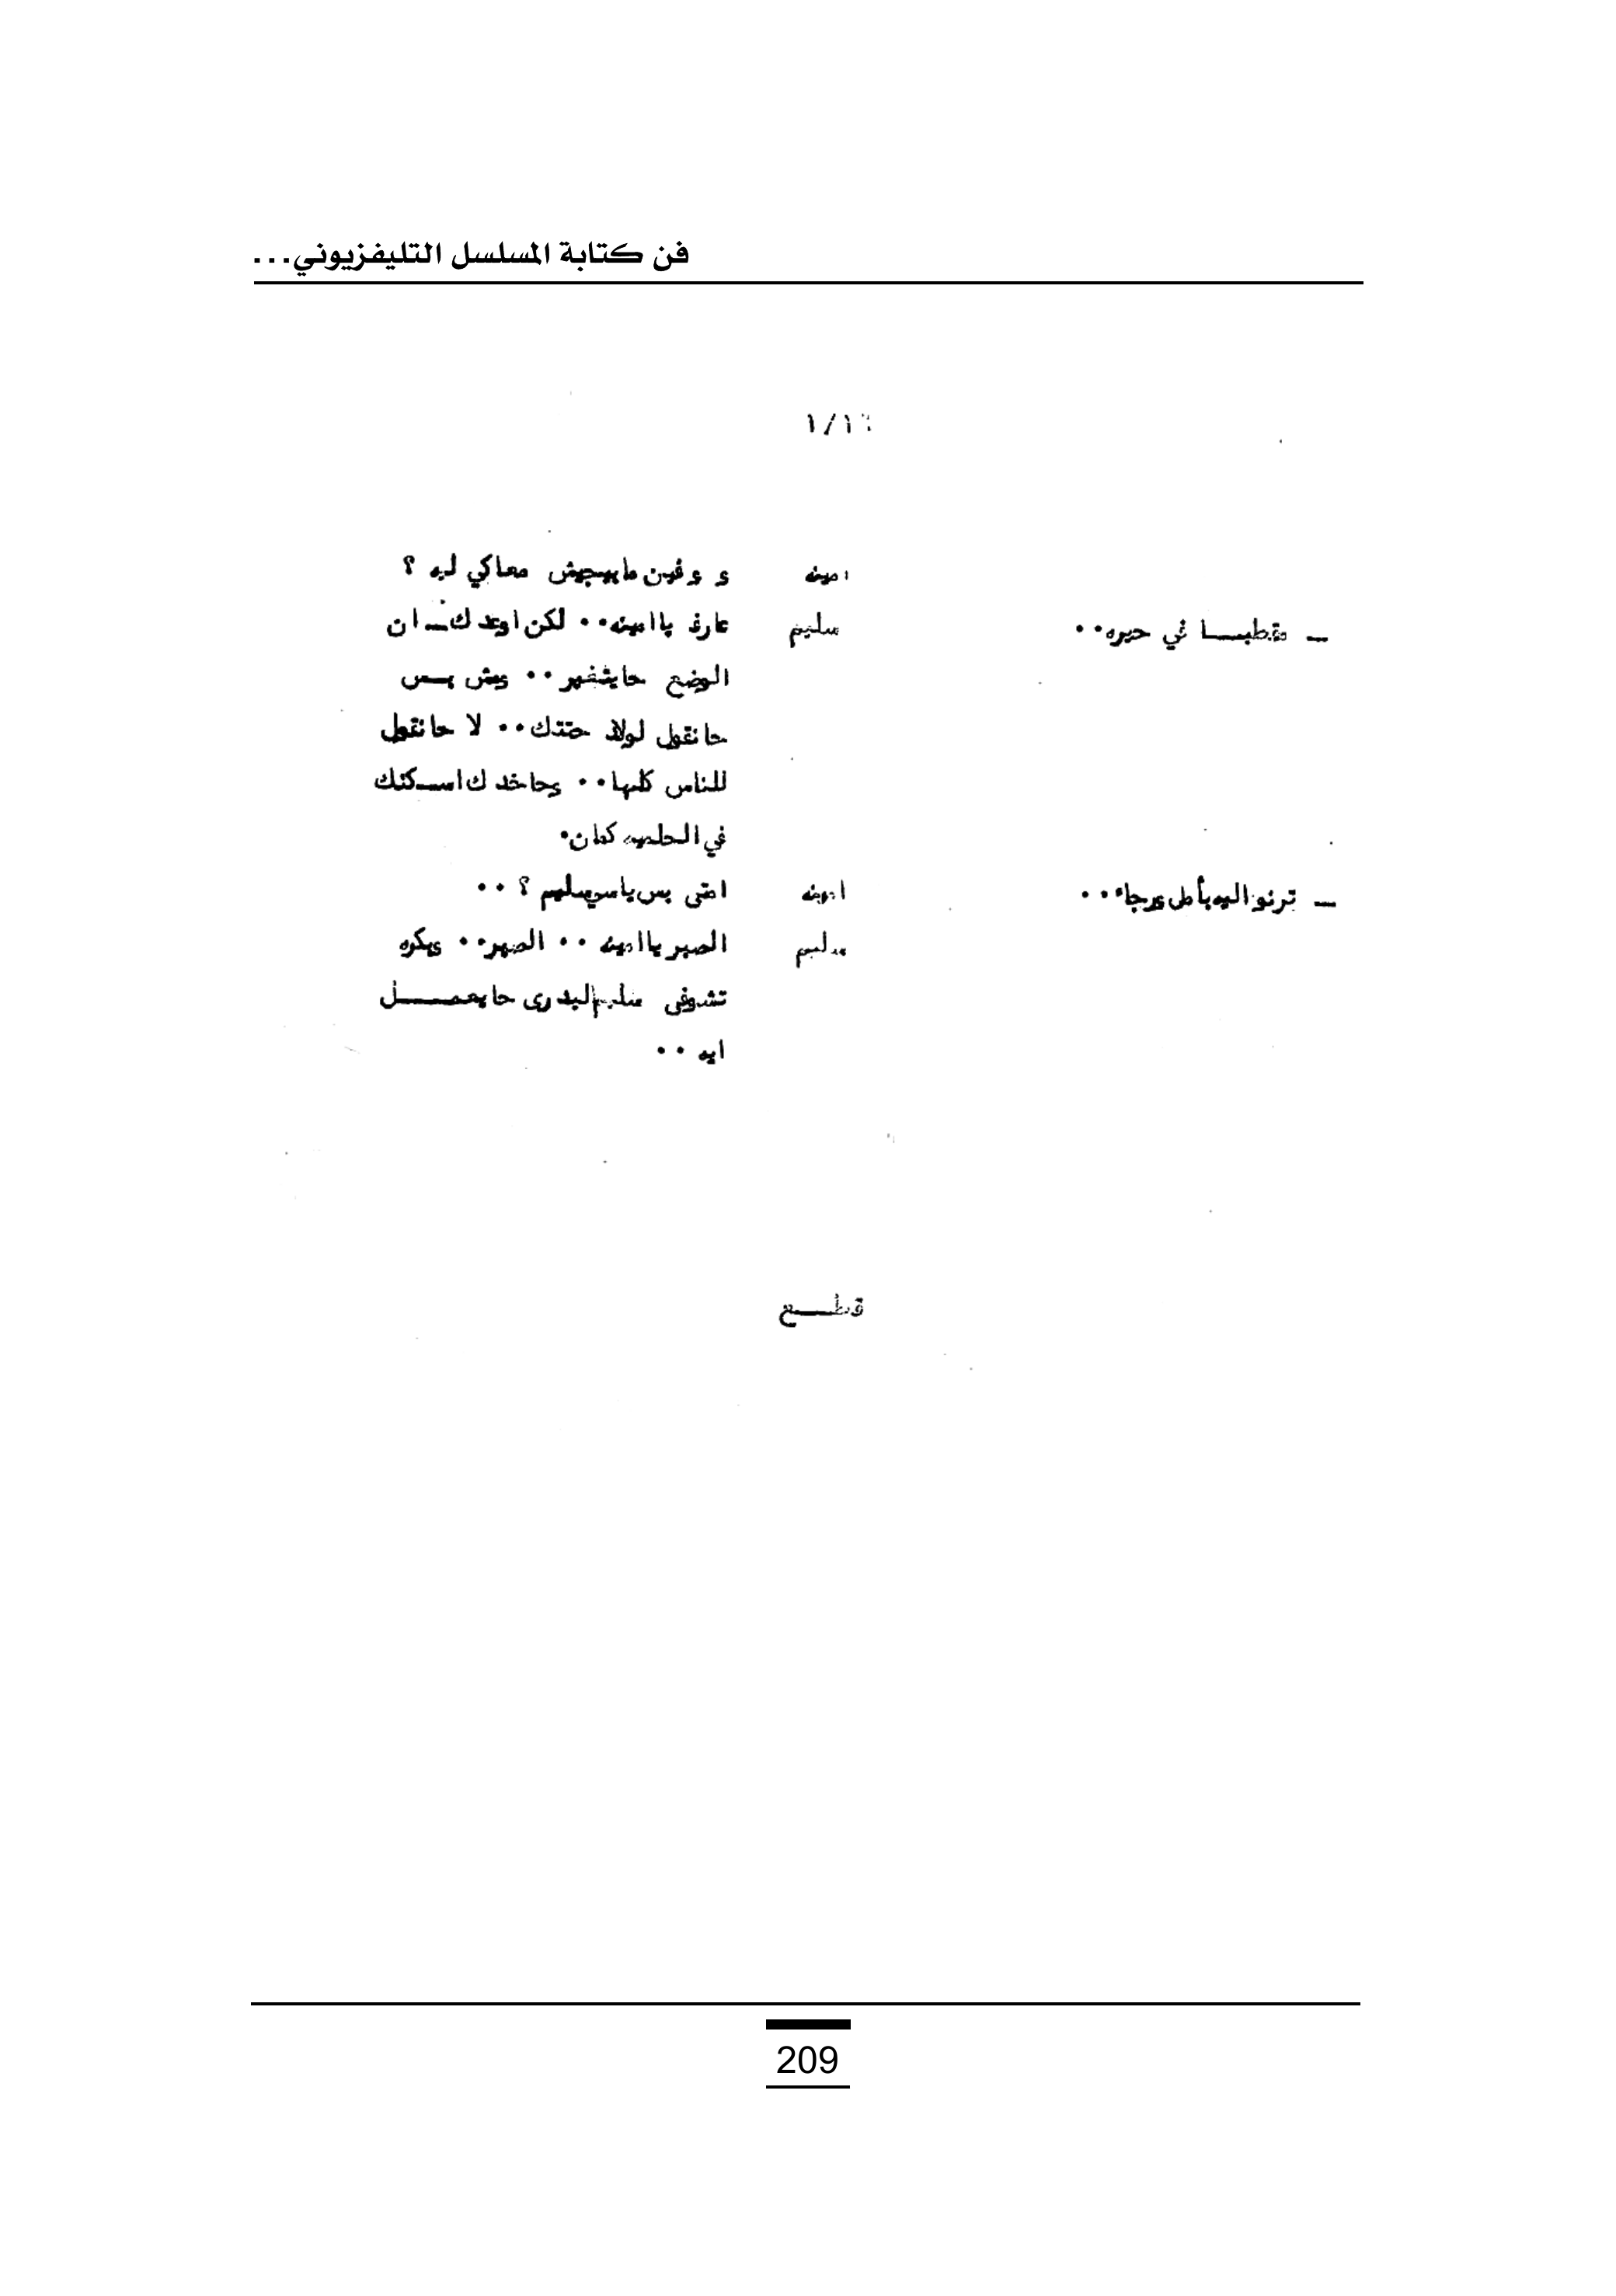 فن كتابة المسلسل التليفزيوني...
١/١٦
امينه و وفين مابيجيش معاكي ليه ؟
ـ مقطبـــا في حيره.. سليم عارف ياامينه.. لكن اوعدك ـ ان
الوضع حايتغير.. ومش بـس
حانقول لولاد حتتك.. لا حانقول
للناس كلها.. وحاخدك اسـكنك
في الحلميه كمان.
ـ ترنو اليه بأمل ورجاء.. امينه امتى بس ياسي سليم ؟ ..
سليم الصبر ياامينه .. الصبر.. وبكره
تشوفى سليم البدرى حايعمـــــل
ايه ..
قطـــع
209